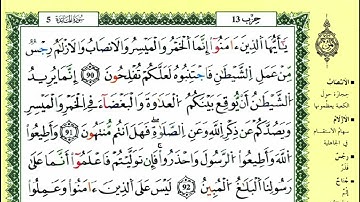 سُورَةُ الْمَائِدَة 5
حِزْب 13
يَٰٓأَيُّهَا ٱلَّذِينَ ءَامَنُوٓا۟ إِنَّمَا ٱلْخَمْرُ وَٱلْمَيْسِرُ وَٱلْأَنصَابُ وَٱلْأَزْلَٰمُ رِجْسٌ
مِّنْ عَمَلِ ٱلشَّيْطَٰنِ فَٱجْتَنِبُوهُ لَعَلَّكُمْ تُفْلِحُونَ 90 إِنَّمَا يُرِيدُ
ٱلشَّيْطَٰنُ أَن يُوقِعَ بَيْنَكُمُ ٱلْعَدَٰوَةَ وَٱلْبَغْضَآءَ فِى ٱلْخَمْرِ وَٱلْمَيْسِرِ
وَيَصُدَّكُمْ عَن ذِكْرِ ٱللَّهِ وَعَنِ ٱلصَّلَوٰةِ ۖ فَهَلْ أَنتُم مُّنتَهُونَ 91 وَأَطِيعُوا۟
ٱللَّهَ وَأَطِيعُوا۟ ٱلرَّسُولَ وَٱحْذَرُوا۟ ۚ فَإِن تَوَلَّيْتُمْ فَٱعْلَمُوٓا۟ أَنَّمَا عَلَىٰ
رَسُولِنَا ٱلْبَلَٰغُ ٱلْمُبِينُ 92 لَيْسَ عَلَى ٱلَّذِينَ ءَامَنُوا۟ وَعَمِلُوا۟
الأنصاب
حجارة حول
الكعبة يعظمونها
الأزلام
سهام الاستقسام
في الجاهلية
رجس
قذر
جناح